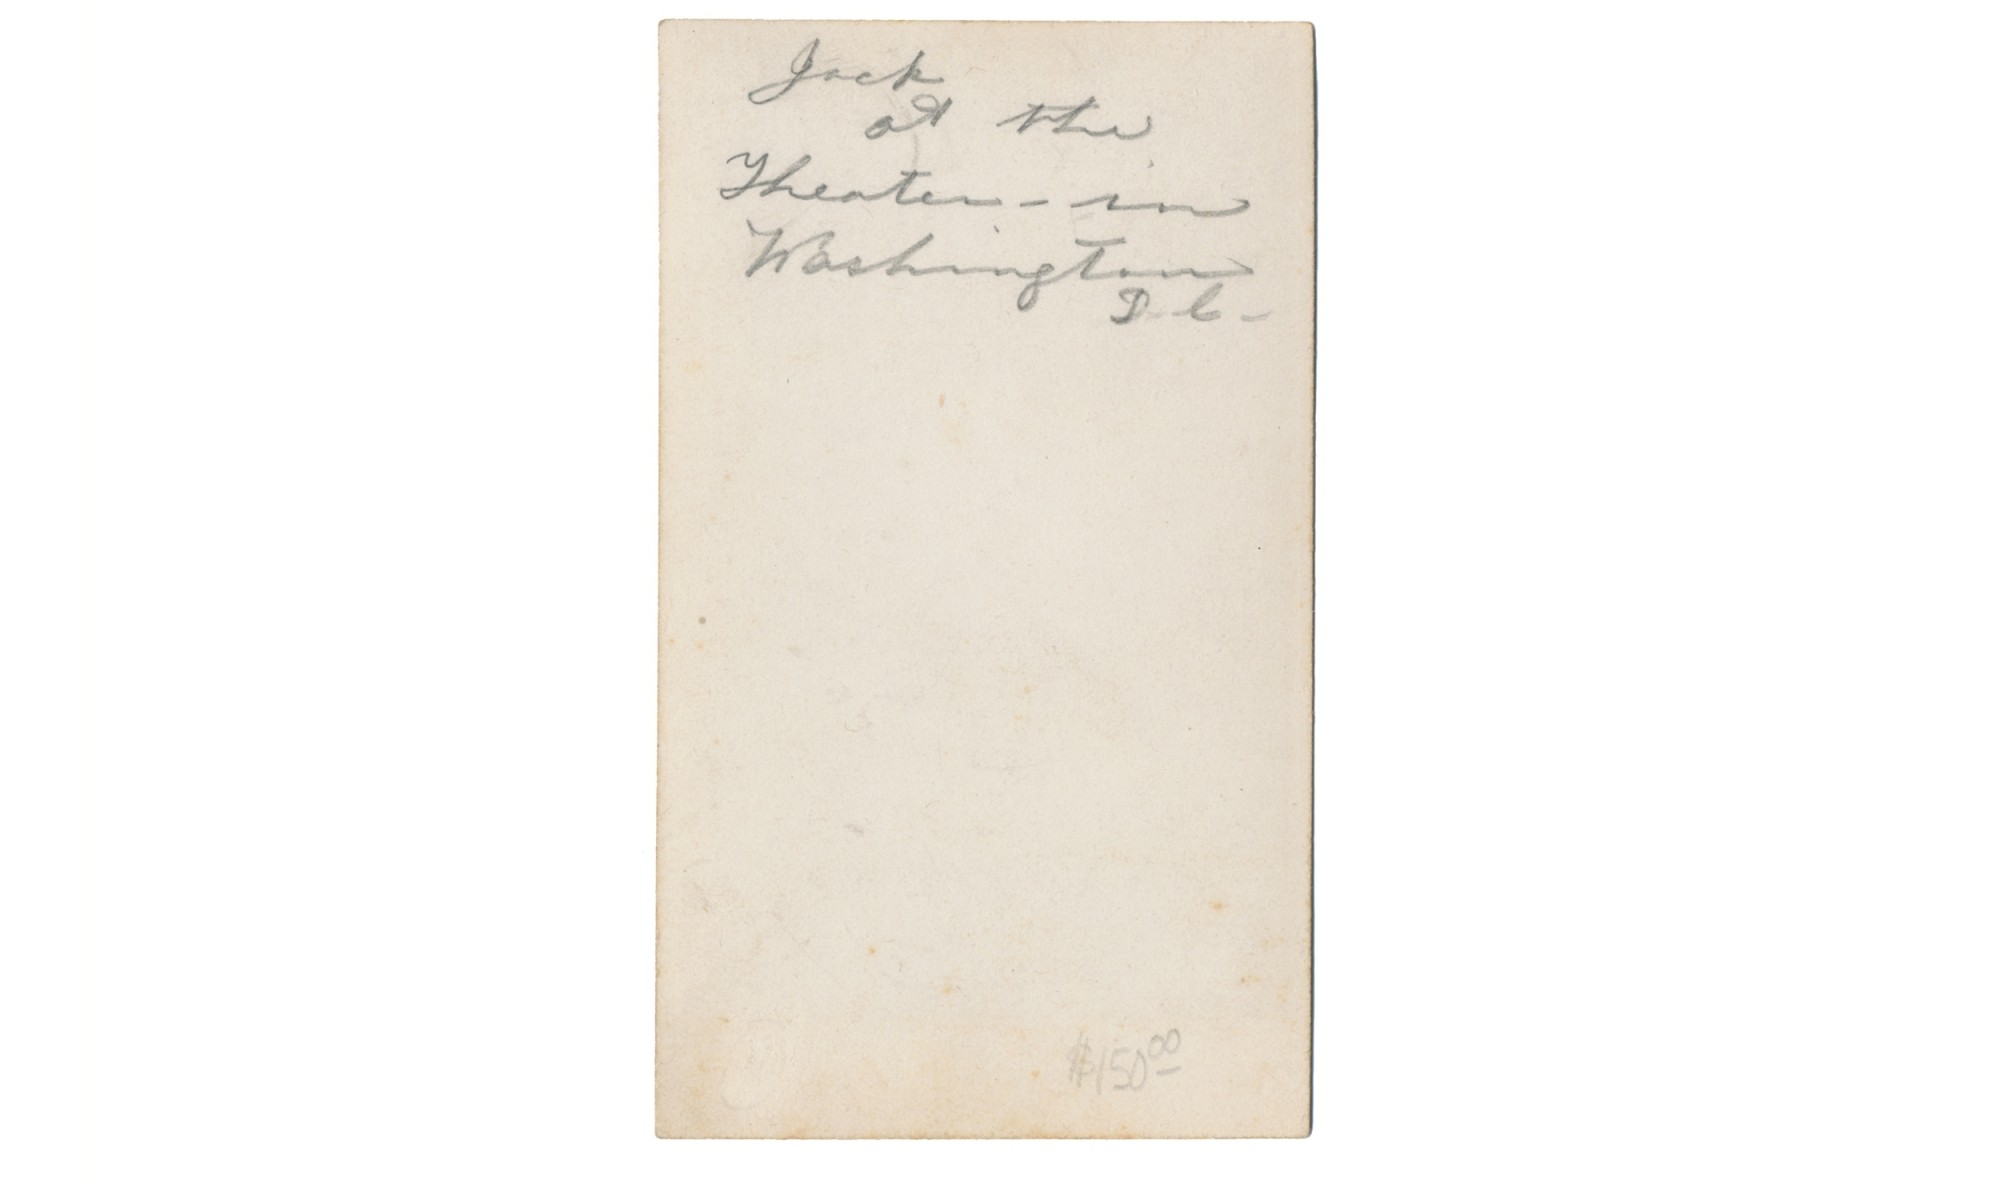 Jack
at the
Theater - in
Washington
D. C -
$150.00